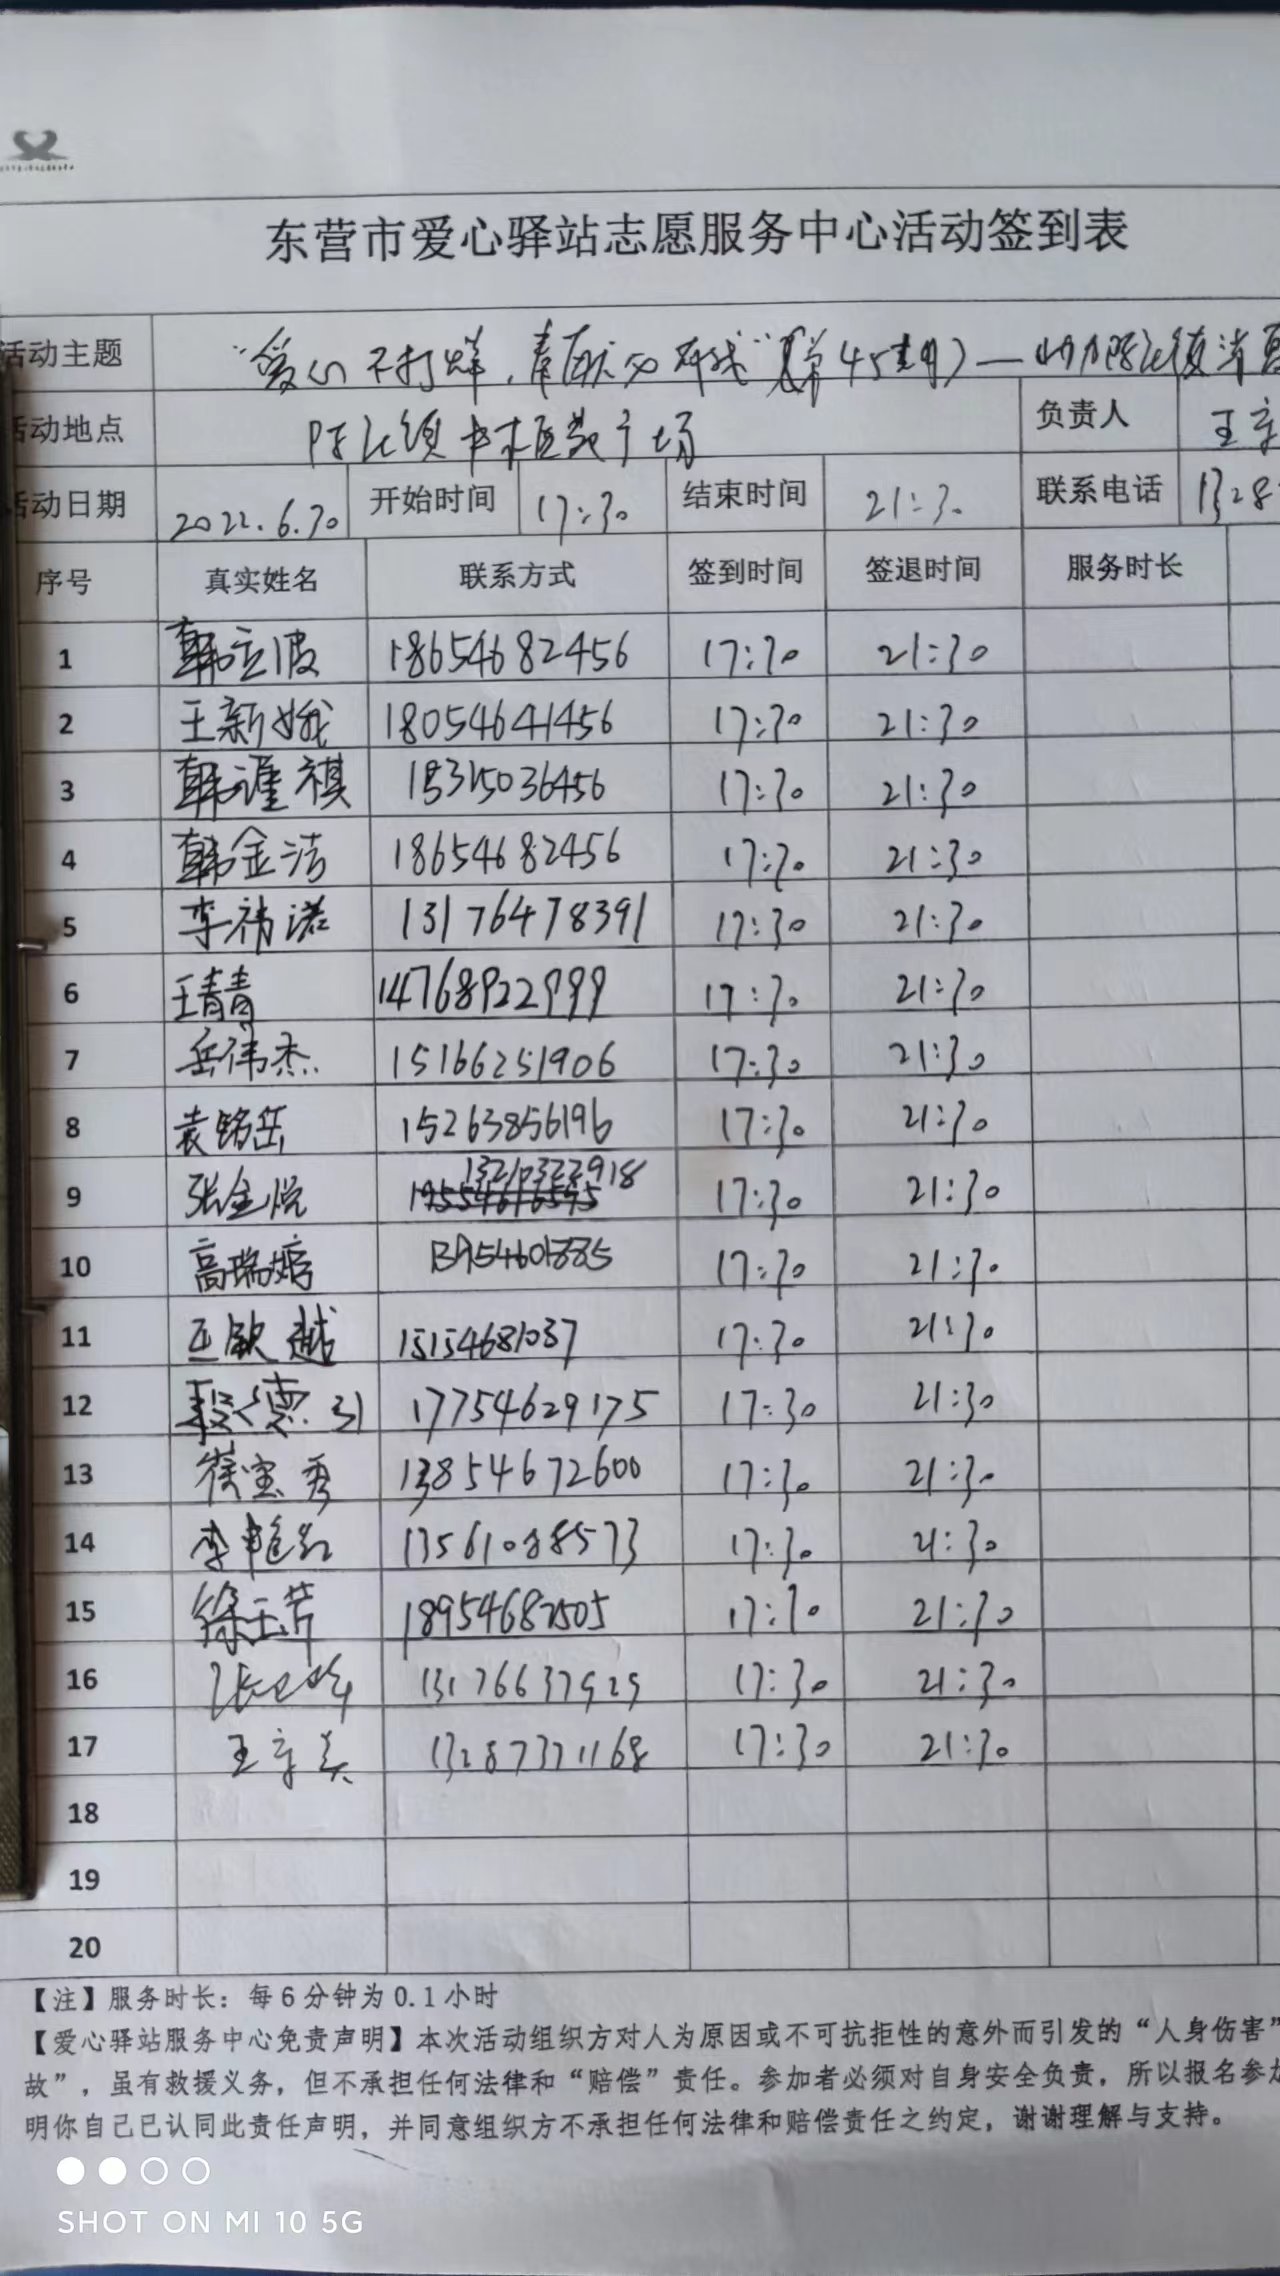 东营市爱心驿站志愿服务中心活动签到表
活动主题 "爱心不打烊，奉献 (第45期)—
活动地点 广场 负责人 王
活动日期 2022.6.30 开始时间 17:30 结束时间 21:30 联系电话 1328
序号 真实姓名 联系方式 签到时间 签退时间 服务时长
1 韩立波 18654682456 17:30 21:30
2 王新娥 18054641456 17:30 21:30
3 韩 祺 18315036456 17:30 21:30
4 韩金洁 18654682456 17:30 21:30
5 李 诺 13176478391 17:30 21:30
6 王青青 14768922999 17:30 21:30
7 岳伟杰 15166251906 17:30 21:30
8 袁铭岳 15263856196 17:30 21:30
9 张金悦 13210322918 17:30 21:30
10 高瑞婷 13954601885 17:30 21:30
11 越 15154681037 17:30 21:30
12 17754629175 17:30 21:30
13 崔宝秀 13854672600 17:30 21:30
14 李 红 13561088573 17:30 21:30
15 徐玉芹 18954682505 17:30 21:30
16 张 13176637929 17:30 21:30
17 王 美 13287371168 17:30 21:30
18
19
20
【注】服务时长：每6分钟为0.1小时
【爱心驿站服务中心免责声明】本次活动组织方对人为原因或不可抗拒性的意外而引发的“人身伤害”
故”，虽有救援义务，但不承担任何法律和“赔偿”责任。参加者必须对自身安全负责，所以报名参加
明你自己已认同此责任声明，并同意组织方不承担任何法律和赔偿责任之约定，谢谢理解与支持。
SHOT ON MI 10 5G